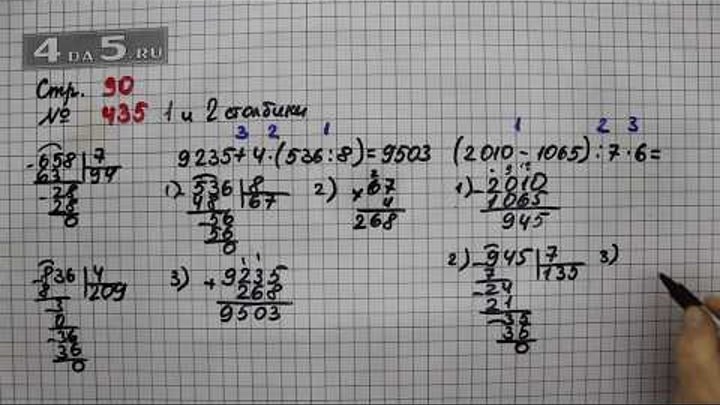 4 DA 5.RU
Стр. 90
№ 435 1 и 2 столбики
3 2 1
9235+4·(536:8)=9503
1 2 3
(2010-1065):7·6=
-658 7
63 94
-28
28
0
1) 536 8
48 67
-56
56
0
2) 2
×67
4
268
1) 9 10
-2010
1065
945
-836 4
8 209
-3
0
-36
36
0
3) 1 1
+9235
268
9503
2) -945 7
7 135
-24
21
-35
35
0
3)